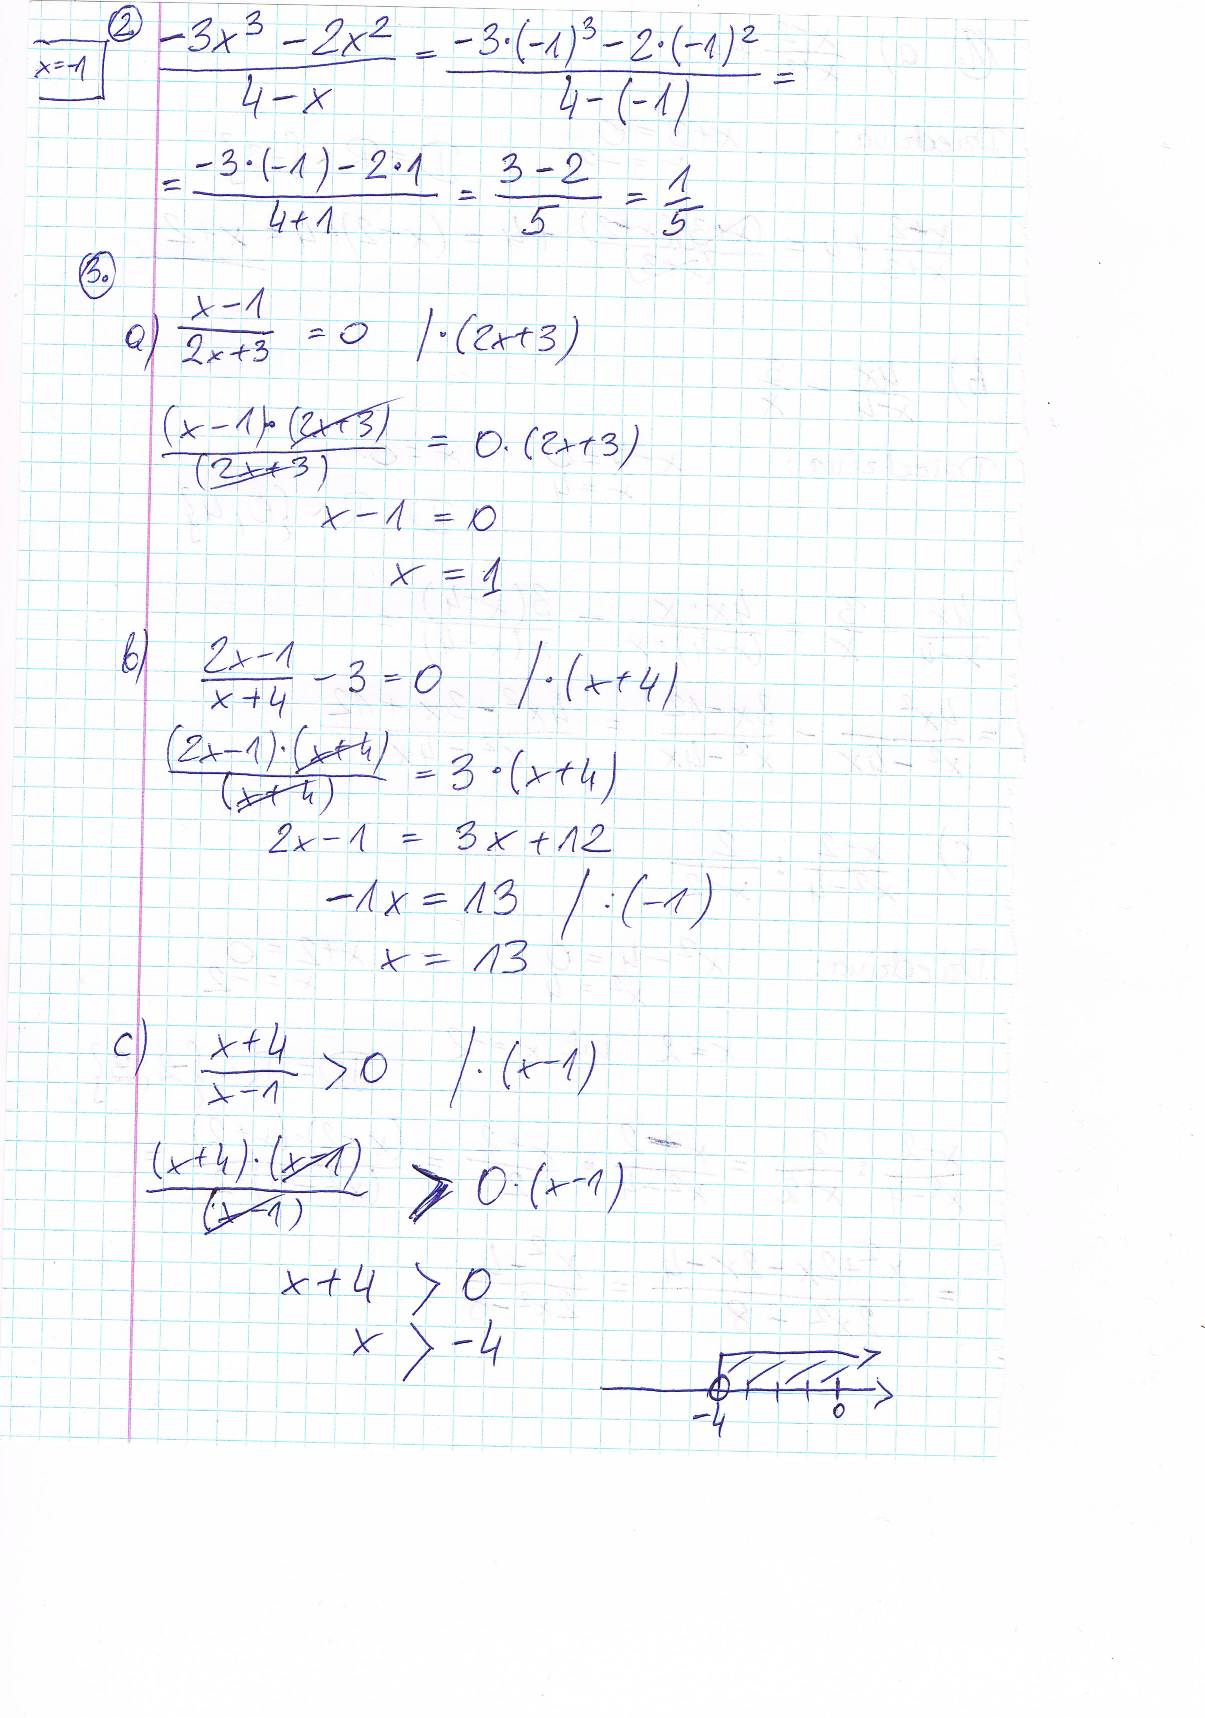 ② (-3x³ - 2x²)/(4 - x) = (-3·(-1)³ - 2·(-1)²)/(4 - (-1)) =
x=-1
= (-3·(-1) - 2·1)/(4+1) = (3 - 2)/5 = 1/5
3.
a) (x-1)/(2x+3) = 0 /·(2x+3)
((x-1)·(2x+3))/(2x+3) = 0·(2x+3)
x-1 = 0
x = 1
b) (2x-1)/(x+4) - 3 = 0 /·(x+4)
((2x-1)·(x+4))/(x+4) = 3·(x+4)
2x-1 = 3x+12
-1x = 13 /:(-1)
x = 13
c) (x+4)/(x-1) > 0 /·(x-1)
((x+4)·(x-1))/(x-1) > 0·(x-1)
x+4 > 0
x > -4
-4 0